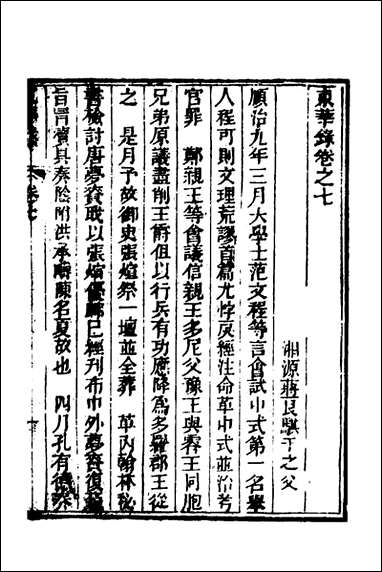 東華錄卷之七
湘源蔣良騏千之父
順治九年三月大學士范文程等言會試中式第一名舉
人程可則文理荒謬首篇尤悖戾經注命革中式並治考
官罪　鄭親王等會議信親王多尼父豫王與睿王同胞
兄弟原議盡削王爵但以行兵有功應降為多羅郡王從
之　是月予故御史張煊祭一壇並全葬　革內翰林秘
書檢討唐夢賚職以張煊優䘏已經刊布中外夢賚復
旨冒瀆具奏陰附洪承疇陳名夏故也　四月孔有德